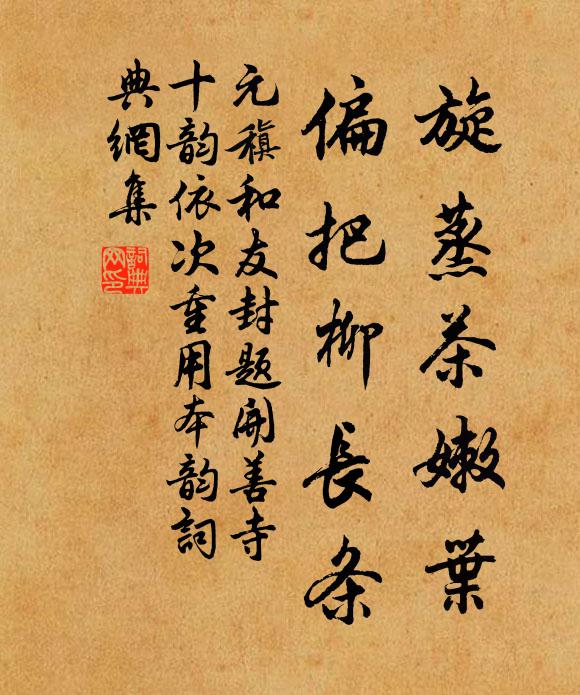 旋蒸茶嫩葉
偏把柳長条
元稹和友封題開善寺
十韵依次重用本韵詞
典網集
詞典网印